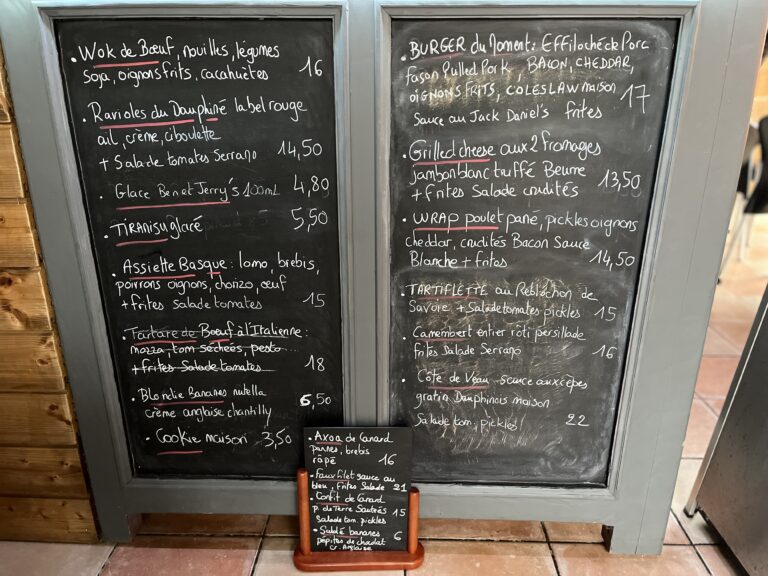 . Wok de Bœuf, nouilles, légumes
soja, oignons frits, cacahuètes 16
. Ravioles du Dauphiné label rouge
ail, crème, ciboulette
+ Salade tomates Serrano 14,50
. Glace Ben et Jerry's 100mL 4,80
. TIRAMISU glacé 5,50
. Assiette Basque : lomo, brebis,
poivrons oignons, chorizo, œuf
+ frites Salade tomates 15
. Tartare de Bœuf à l'Italienne :
mozza, tom séchées, pesto
+ frites Salade tomates 18
. Blondie Bananes nutella
crème anglaise chantilly 6,50
. Cookie maison 3,50
. BURGER du Moment : Effiloché de Porc
façon Pulled Pork, BACON, CHEDDAR,
OIGNONS FRITS, COLESLAW maison
Sauce au Jack Daniel's frites 17
. Grilled cheese aux 2 fromages
jambon blanc truffé Beurre
+ frites Salade crudités 13,50
. WRAP poulet pané, pickles oignons
cheddar, crudités Bacon Sauce
Blanche + frites 14,50
. TARTIFLETTE au Reblochon de
Savoie + Salade tomates pickles 15
. Camembert entier rôti persillade
frites Salade Serrano 16
. Côte de Veau sauce aux cèpes
gratin Dauphinois maison
Salade tom, pickles 22
. Axoa de Canard
pennes, brebis
râpé 16
. Faux filet sauce au
bleu, frites Salade 21
. Confit de Canard
p. de Terre Sautées 15
Salade tom. pickles
. Sablé bananes 6
pépites de chocolat
cr. Anglaise